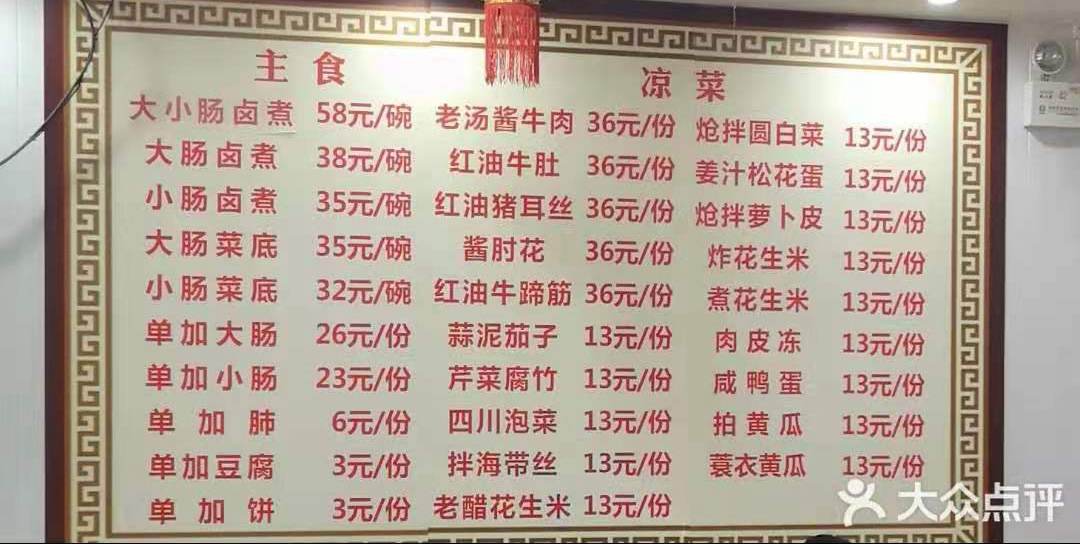 主食
大小肠卤煮 58元/碗
大肠卤煮 38元/碗
小肠卤煮 35元/碗
大肠菜底 35元/碗
小肠菜底 32元/碗
单加大肠 26元/份
单加小肠 23元/份
单加肺 6元/份
单加豆腐 3元/份
单加饼 3元/份
凉菜
老汤酱牛肉 36元/份
红油牛肚 36元/份
红油猪耳丝 36元/份
酱肘花 36元/份
红油牛蹄筋 36元/份
蒜泥茄子 13元/份
芹菜腐竹 13元/份
四川泡菜 13元/份
拌海带丝 13元/份
老醋花生米 13元/份
炝拌圆白菜 13元/份
姜汁松花蛋 13元/份
炝拌萝卜皮 13元/份
炸花生米 13元/份
煮花生米 13元/份
肉皮冻 13元/份
咸鸭蛋 13元/份
拍黄瓜 13元/份
蓑衣黄瓜 13元/份
大众点评